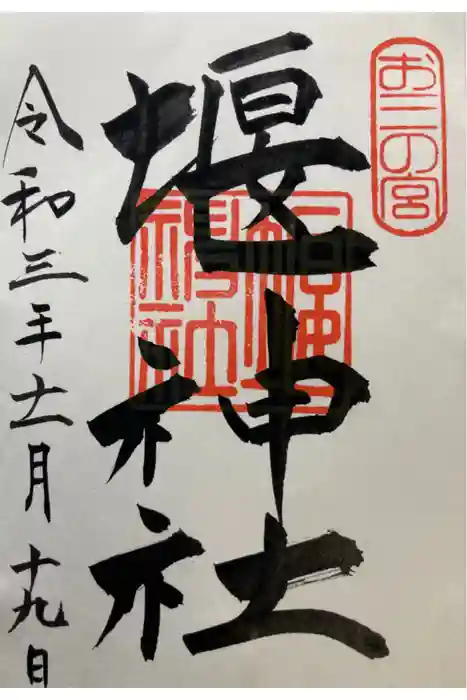 お三の宮
堰神社
令和三年十一月十九日
堰神社